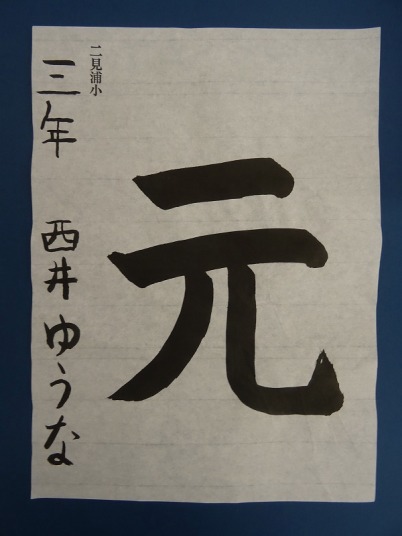 元
二見浦小
三年 西井ゆうな